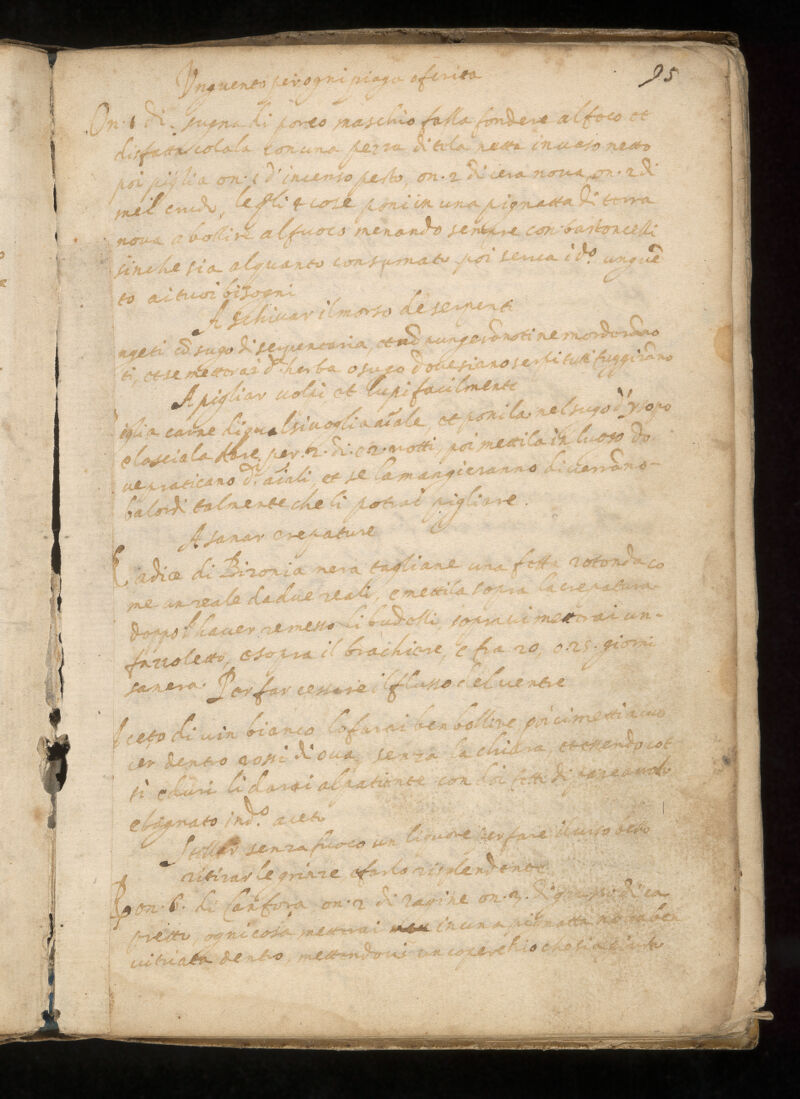 95
Unguento per ogni piaga o ferita
On. 1 di sugna di porco maschio falla fondere al foco et
disfatta colala con una pezza di tela netta in vaso netto
poi piglia on. 1 d'incenso pesto, on. 2 di cera nova, on. 2 di
mel crudo, le qli 4 cose poni in una pignatta di terra
nova a bollire al fuoco menando sempre con bastoncelli
sinche sia alquanto consumato poi serva i do. unguē
to ai tuoi bisogni
A schivar il morso de serpenti
ngeti cō sugo di serpentaria, et nō pungerānoti ne morderāno
ti, et se metterai da. herba o sugo dove siano serpi tutti fuggirāno
A pigliar volpi et lupi facilmente
iglia carne di qual si voglia aīale, et ponila nel sugo d'
e lasciala stare per 2. di e 2. notti, poi mettila in luogo do
ve praticano di. aīali, et se la mangieranno diverrāno
balordi talmente che li potrai pigliare.
A sanar crepature
Radice di Bironia nera tagliane una fetta rotonda co
me un reale da due reali, e mettila sopra la crepatura
doppo l'haver remesso li budelli, sopra vi metterai un
fazzoletto, e sopra il brachiere, e fra 20, o 25. giorni
sanera. Per far cessare il flusso del ventre
Aceto di vin bianco lo farai ben bollire poi ci metti a co
cer dentro rossi di ova, senza la chiara, et essendo cot
ti e duri li darai al patiente con doi fette di pane
e bagnato in do. aceto
Stillar senza fuoco un liquore per fare il viso bello
ritirar le grinze e farlo risplendente
on. 6. di Canfora on. 2 di ragine on. 3. di di ca
pretto, ogni cosa metterai in una pignatta nova ben
vitriata dentro, mettendovi un coperchio che sia